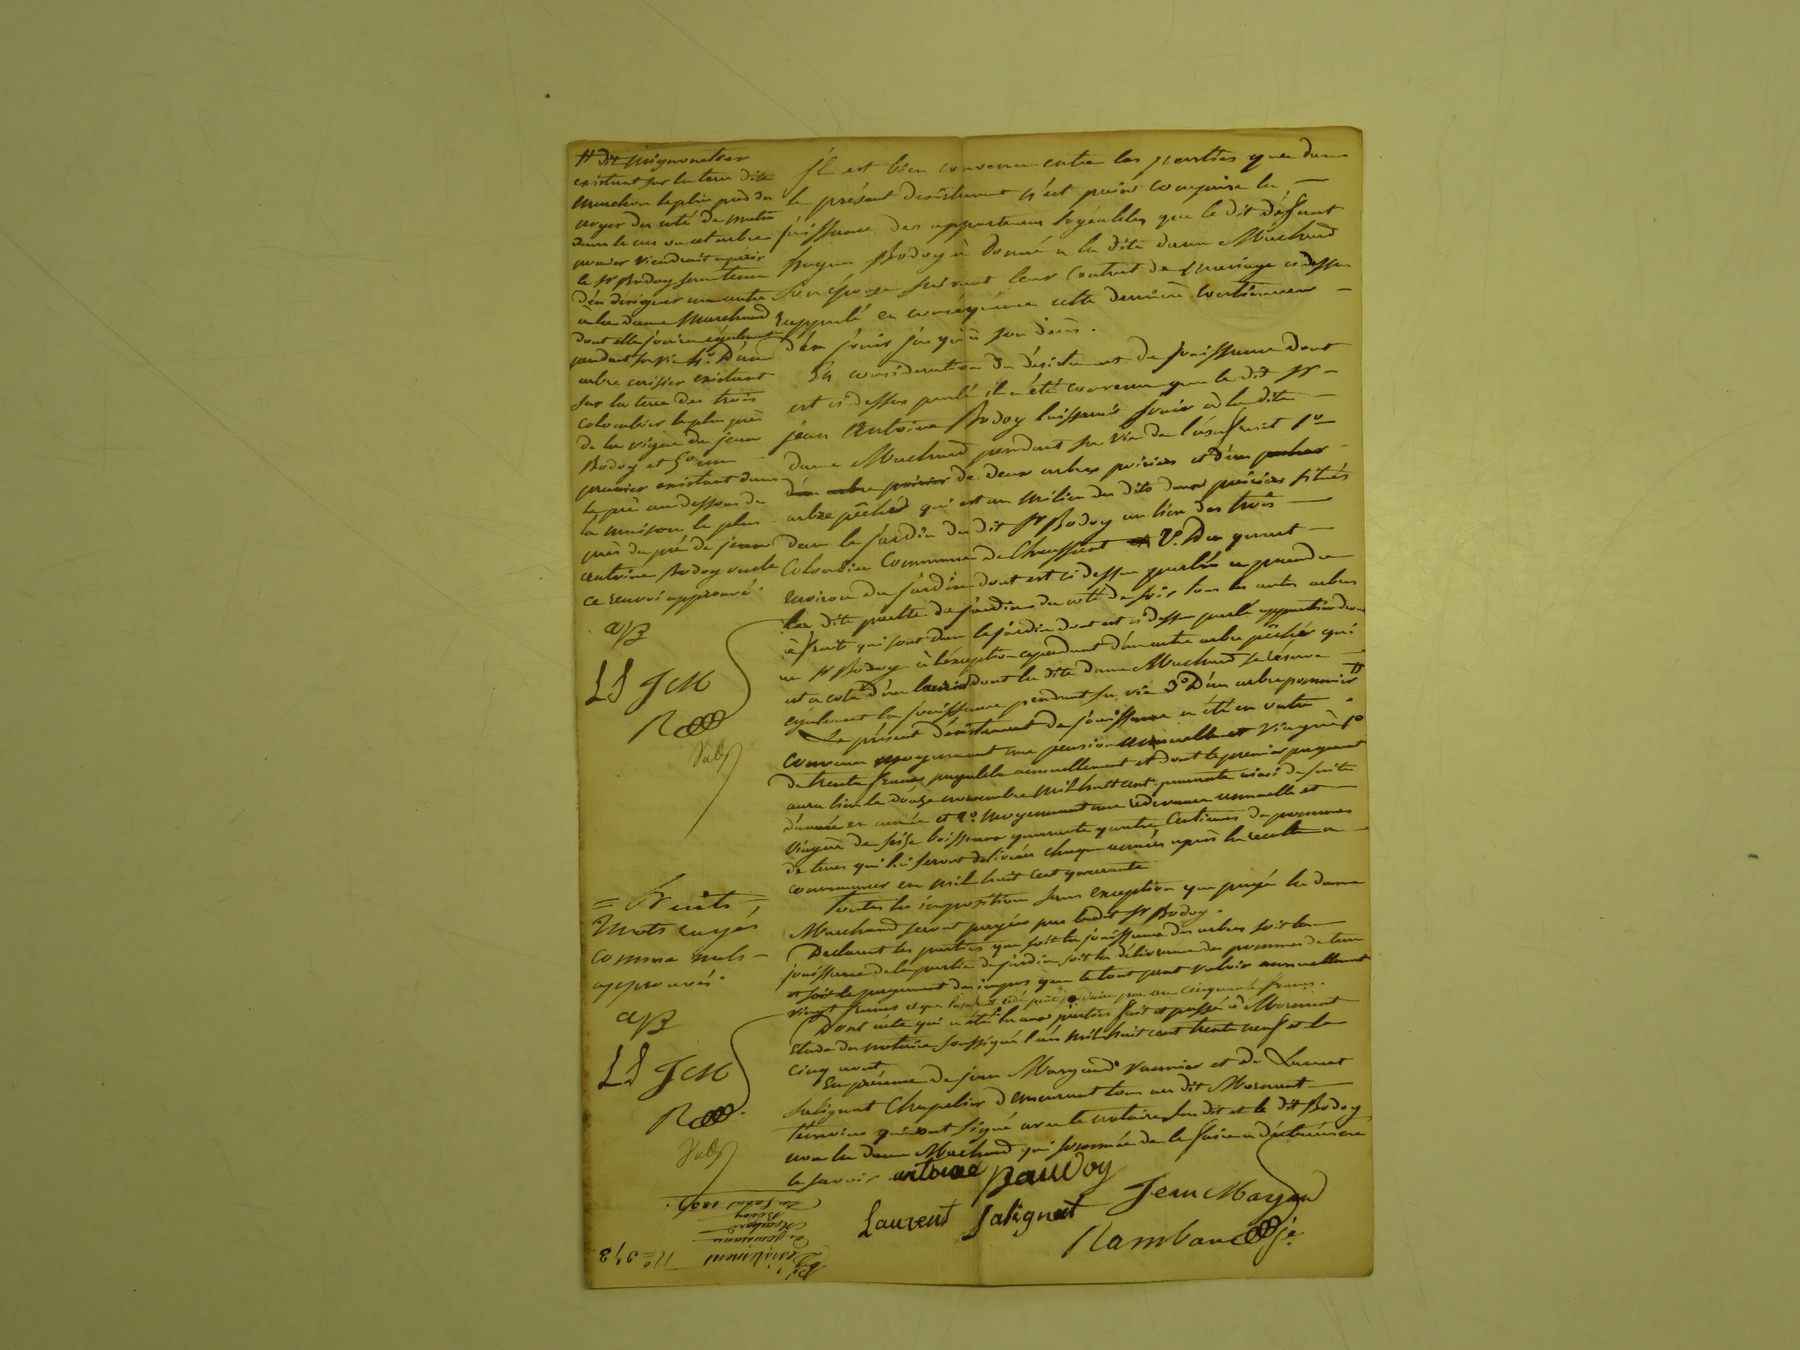 Il est bien convenu entre les parties que dans
le présent desistement n'est point comprise la
jouissance des appartemens logeables que le dit défunt
Bodoy à donné a la dite dame Machard
son épouse suivant leur contrat de mariage ci dessus
rappelé en conséquence cette dernière continuera
d'en jouir jusqu'à son décès.
En considération du désistement de jouissance dont
est ci dessus parlé il a été convenu que le dit Sr
jean Antoine Bodoy laisserait jouir à la dite
dame Machard pendant sa vie de l'usufruit 1o
de deux arbres poiriers et d'un
arbre pêcher qui est au milieu des dits deux poiriers situés
dans le jardin du dit Sr Bodoy au lieu des trois
Colombier Commune de Chaussant 2o Du quart
environ du jardin dont est ci dessus parlé a prendre
la dite partie de jardin du coté de soir tous les autres arbres
à fruits qui sont dans le jardin dont est ci dessus parlé appartiendront
au Sr Bodoy à l'exception cependant d'un autre arbre pêcher qui
est a coté d'un laurier dont la dite dame Machard se réserve
également la jouissance pendant sa vie 3o D'un arbre pommier #
Le présent désistement de jouissance a été en outre
convenu moyennant une pension annuelle et viagère 1o
de trente francs payable annuellement et dont le premier payement
aura lieu le douze novembre mil huit cent quarante ainsi de suite
d'année en année et 2o moyennant une redevance annuelle et
viagère de seize boisseaux quarante quatre Centiemes de pommes
de terres qui lui seront délivrées chaque année après la recolte a
commencer en mil huit cent quarante
Toutes les impositions sans exception que paye la dame
Marchard seront payées par ledit Sr Bodoy.
Declarent les parties que soit la jouissance des arbres soit la
jouissance de la partie de jardin soit la délivrance des pommes de terre
et soit le payement des impots que le tout peut valoir annuellement
vingt francs
Dont acte qui a été lu aux parties fait et passé à Mornant
étude du notaire soussigné l'an mil huit cent trente neuf et le
cinq aout
En présence de jean Margand vannier et de Laurent
Salignat Chapelier demeurant tous au dit Mornant
témoins qui ont signé avec le notaire le dit Bodoy
non la dame Machard qui sommée de le faire a déclaré ne
le savoir
antoine Baudoy
Laurent Salignat
Jean Margand
# dit
existant sur la terre dite
le plus près du
noyer du coté de matin
dans le cas ou cet arbre
pommier viendrait a périr
le Sr Bodoy sera tenu
d'en désigner un autre
à la dame Marchard
dont elle jouira également
pendant sa vie 4o D'un
arbre cerisier existant
sur la terre des trois
colombier le plus près
de la vigne du jeune
Bodoy et 5o un
existant dans
le pré au dessous de
la maison le plus
près du pré de jean
Antoine Bodoy oncle
ce renvoi approuvé.
aB
LS JCM
R
= Huit =
Mots rayés
comme nuls
approuvés.
aB
LS JCM
R
Désistement
de jouissance
Machard
Bodoy